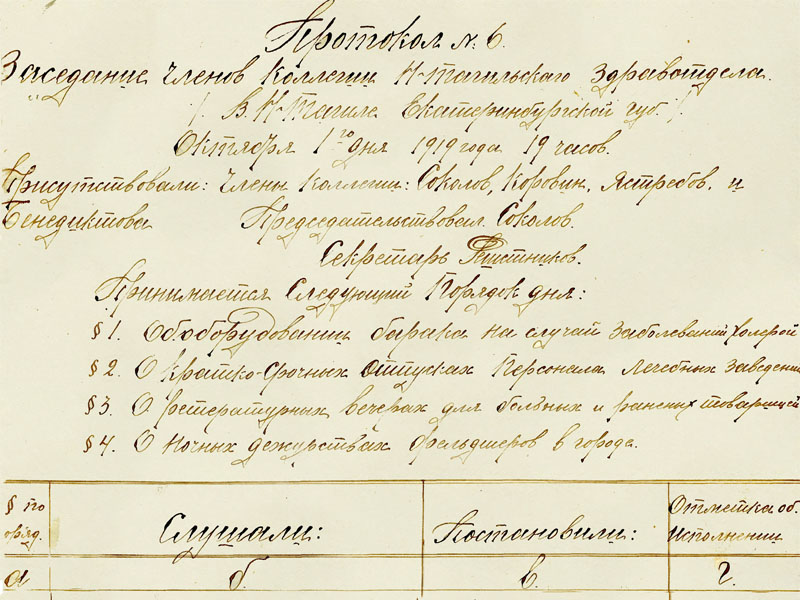 Протокол № 6.
Заседание членов Коллегии Н-Тагильскаго Здравотдела.
/ В. Н-Тагиле Екатеринбургской губ. /.
Октября 1го дня 1919 года 19 часов.
Присутствовали: Члены Коллегии: Соколов, Коровин, Ястребов. и
Бенедиктова Председательствовал. Соколов.
Секретарь Решетников.
Принимается Следующий Порядок дня:
§ 1. Об оборудовании барака на случай заболеваний холерой
§ 2. О кратко-срочных отпусках персонала лечебных заведени
§ 3. О вечерах для больных и раненых товарищей
§ 4. О ночных дежурствах фельдшеров в городе.
§ по Отметка об.
поряд. Слушали: Постановили: Исполнении
а б. в. г.